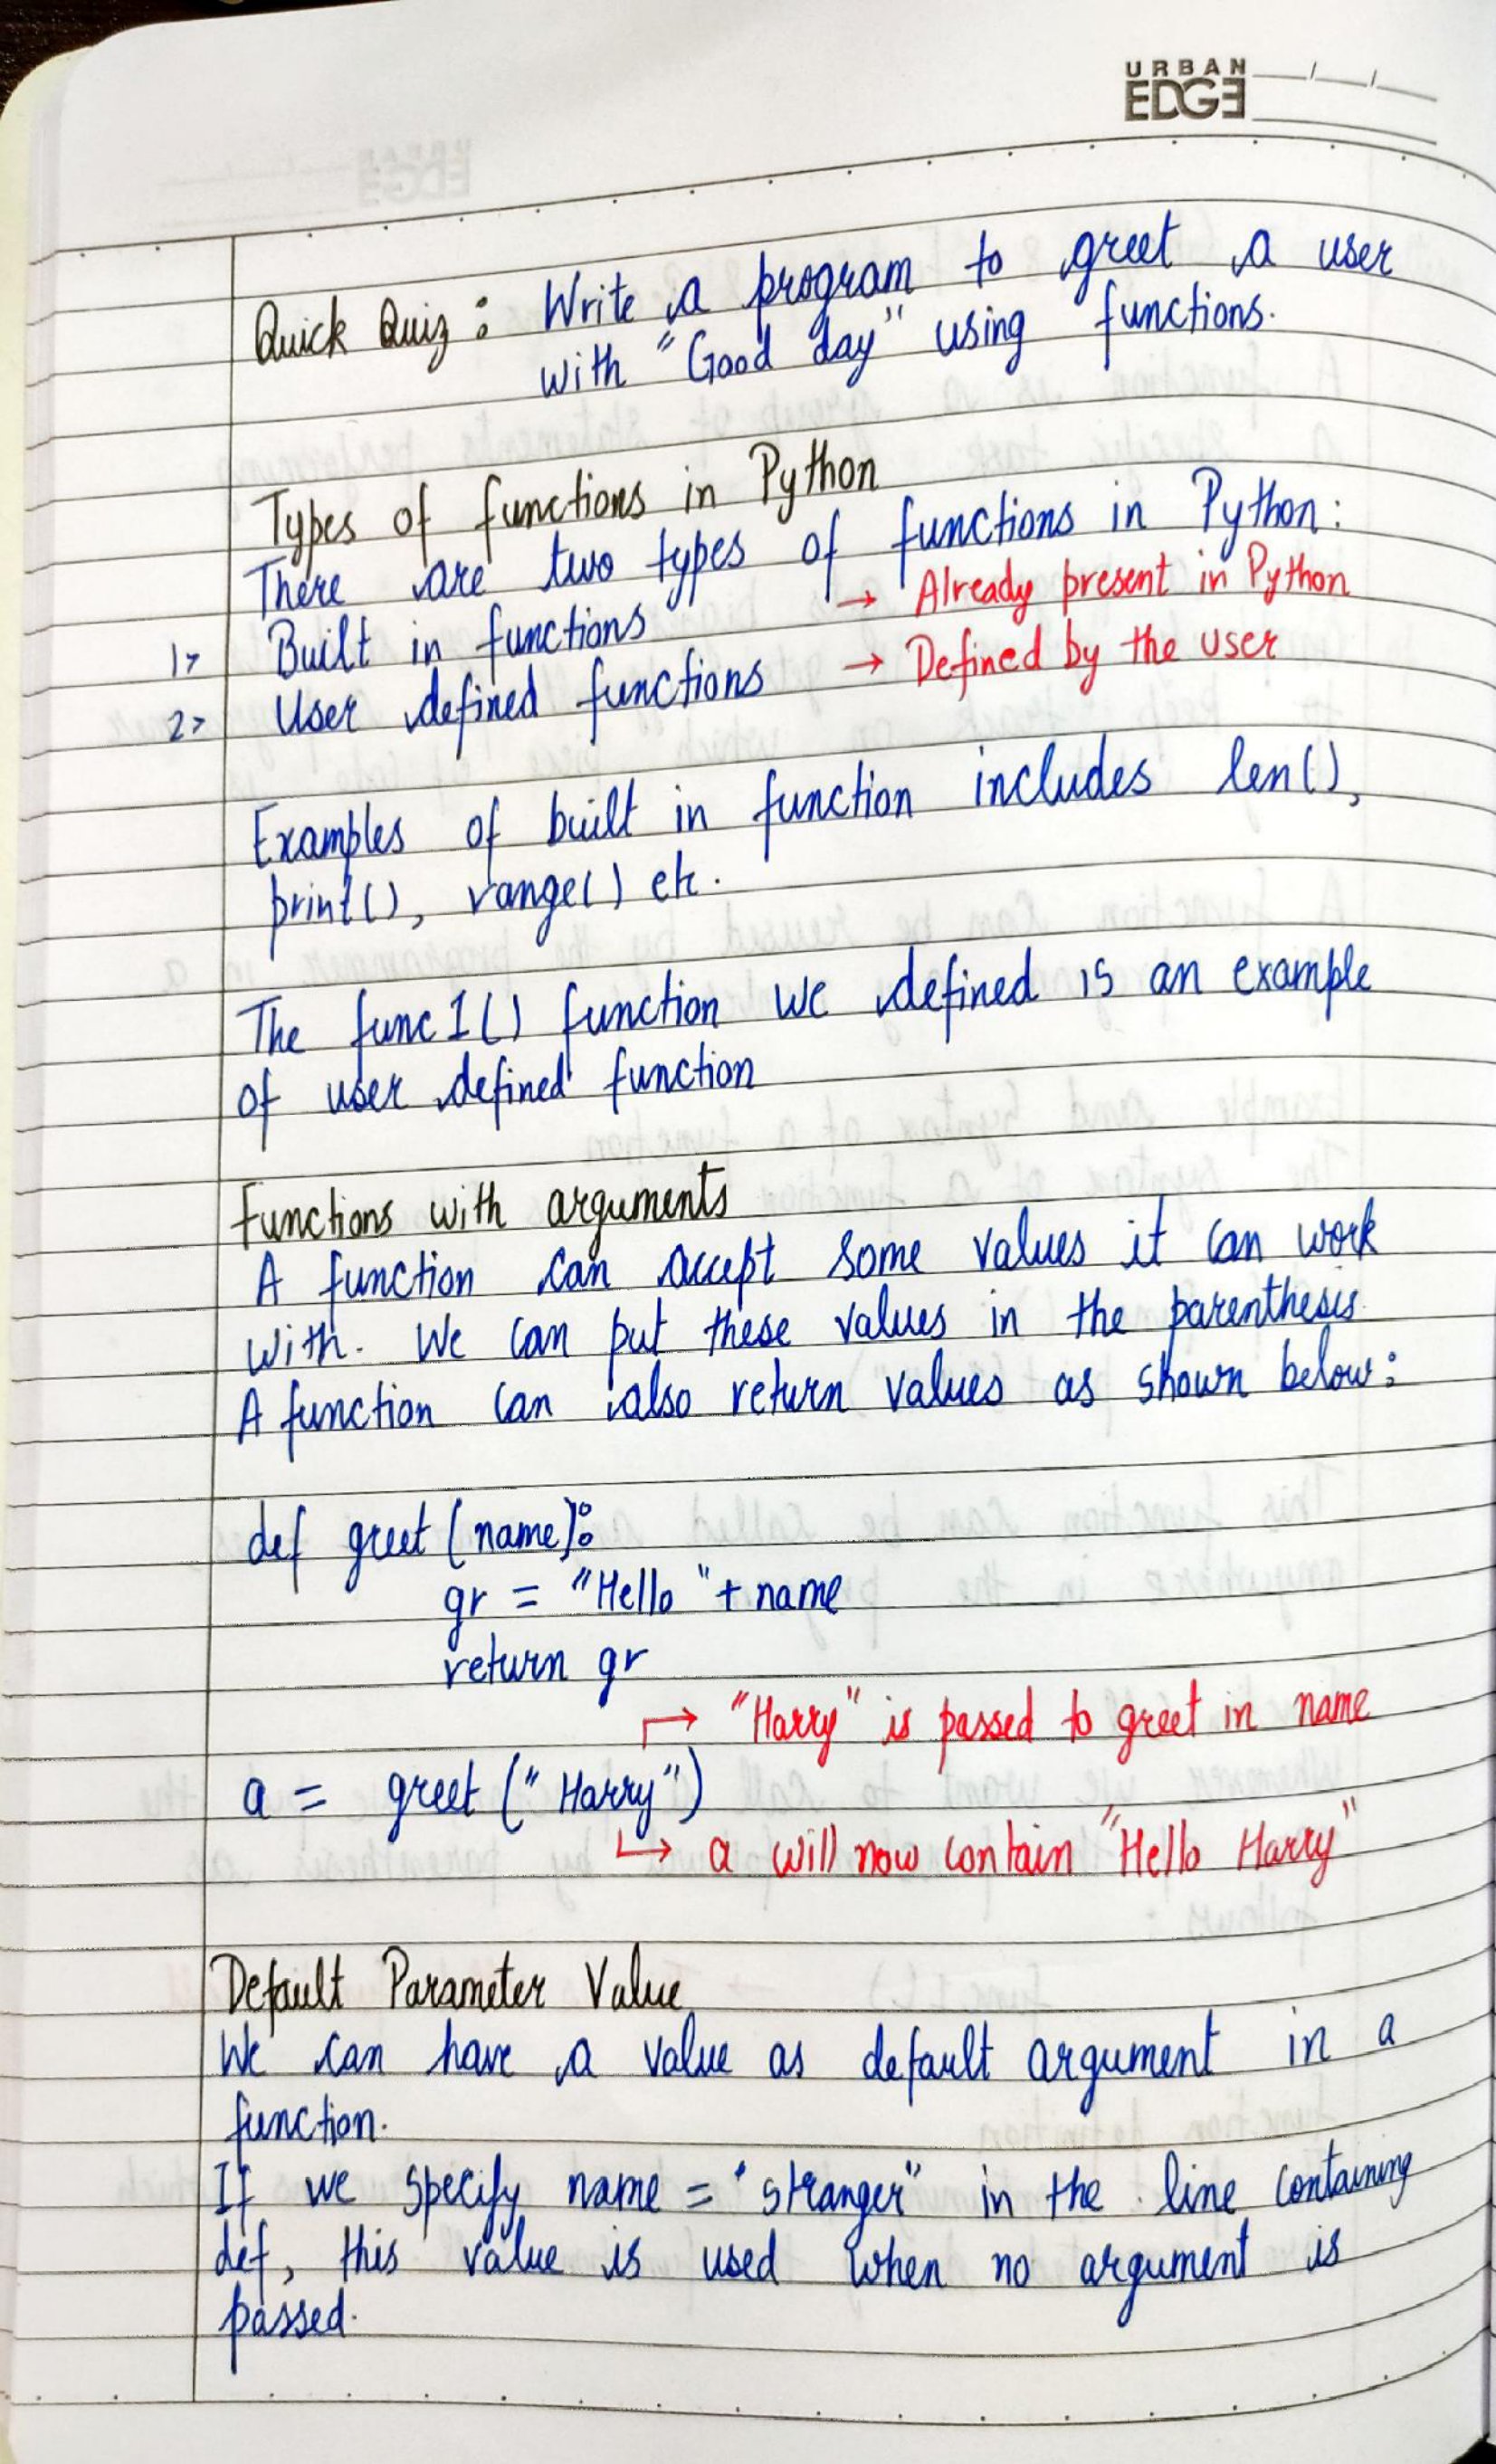 URBAN
EDGE
Quick Quiz : Write a program to greet a user
with "Good day" using functions.
Types of functions in Python
There are two types of functions in Python :
1> Built in functions → Already present in Python
2> User defined functions → Defined by the user
Examples of built in function includes len(),
print(), range() etc.
The func1() function we defined is an example
of user defined function
Functions with arguments
A function can accept some values it can work
with. We can put these values in the parenthesis
A function can also return values as shown below :
def greet (name):
gr = "Hello "+ name
return gr
→ "Harry" is passed to greet in name
a = greet ("Harry")
→ a will now contain "Hello Harry"
Default Parameter Value
We can have a value as default argument in a
function.
If we specify name = "stranger" in the line containing
def, this value is used when no argument is
passed.